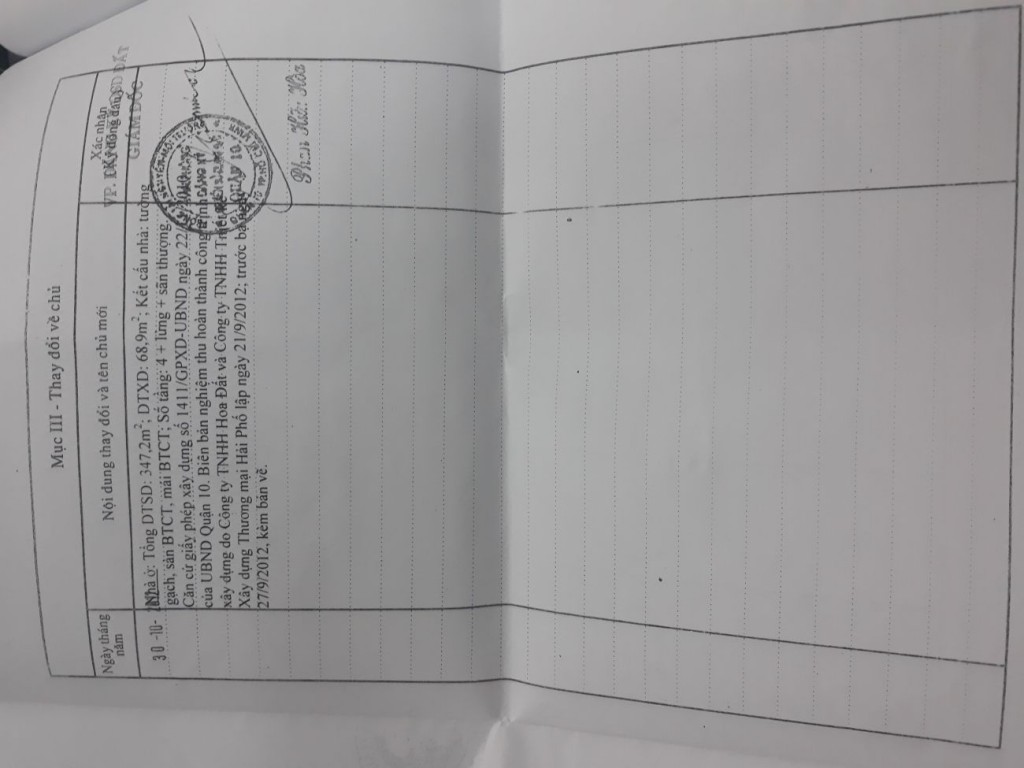 Mục III - Thay đổi về chủ
Ngày tháng năm
Nội dung thay đổi và tên chủ mới
Xác nhận
GIÁM ĐỐC
30 -10-
Nhà ở: Tổng DTSD: 347,2m²; DTXD: 68,9m²; Kết cấu nhà: tường
gạch, sàn BTCT, mái BTCT; Số tầng: 4 + lửng + sân thượng
Căn cứ giấy phép xây dựng số 1411/GPXD-UBND ngày 22/
của UBND Quận 10. Biên bản nghiệm thu hoàn thành công trình
xây dựng do Công ty TNHH Hoa Đất và Công ty TNHH
Xây dựng Thương mại Hải Phố lập ngày 21/9/2012; trước bạ ngày
27/9/2012, kèm bản vẽ.